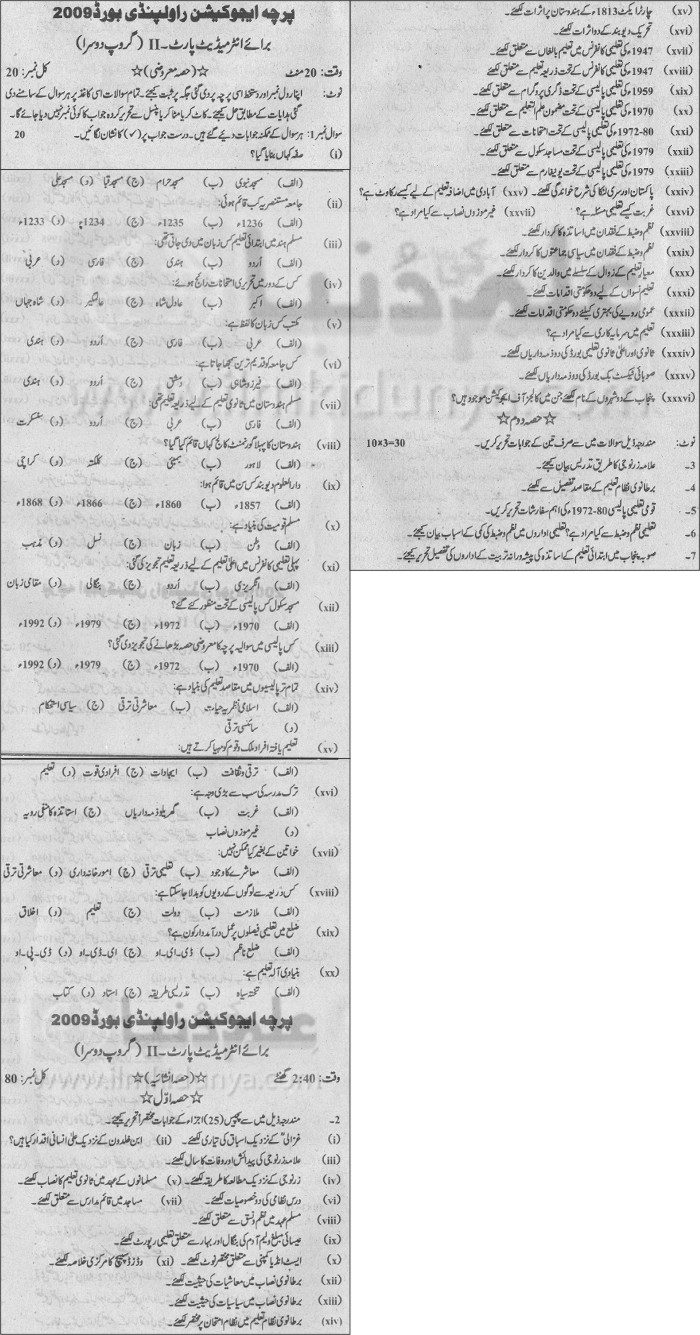 پرچہ ایجوکیشن راولپنڈی بورڈ 2009
برائے انٹرمیڈیٹ پارٹ۔ II (گروپ دوسرا)
وقت: 20 منٹ ☆(حصہ معروضی)☆ کل نمبر: 20
نوٹ: اپنا رول نمبر اور دستخط اسی پرچہ پر دی گئی جگہ پر ثبت کیجئے۔ تمام سوالات اسی کاغذ پر ہر سوال کے سامنے دی
گئی ہدایات کے مطابق حل کیجئے۔ کاٹ کر یا مٹا کر یا پنسل سے تحریر کردہ جواب کا کوئی نمبر نہیں دیا جائے گا۔
سوال نمبر 1: ہر سوال کے ممکنہ جوابات دیے گئے ہیں۔ درست جواب پر (✓) کا نشان لگائیں۔ 20
(i) صفہ کہاں بنایا گیا؟
(الف) مسجد نبوی (ب) مسجد حرام (ج) مسجد قبا (د) مسجد علی
(ii) جامعہ مستنصریہ کب قائم ہوئی:
(الف) 1236ء (ب) 1235ء (ج) 1234ء (د) 1233ء
(iii) مسلم ہند میں ابتدائی تعلیم کس زبان میں دی جاتی تھی:
(الف) اُردو (ب) ہندی (ج) فارسی (د) عربی
(iv) کس کے دور میں تحریری امتحانات رائج ہوئے:
(الف) اکبر (ب) عادل شاہ (ج) عالمگیر (د) شاہ جہاں
(v) مکتب کس زبان کا لفظ ہے:
(الف) عربی (ب) فارسی (ج) اُردو (د) ہندی
(vi) کس جامعہ کو قدیم ترین سمجھا جاتا ہے:
(الف) فیروز شاہی (ب) دمشق (ج) اُردو (د) ہندی
(vii) مسلم ہندوستان میں ثانوی تعلیم کے لیے ذریعہ تعلیم تھی:
(الف) فارسی (ب) عربی (ج) اُردو (د) سنسکرت
(viii) ہندوستان کا پہلا گورنمنٹ کالج کہاں قائم کیا گیا؟
(الف) لاہور (ب) بمبئی (ج) کلکتہ (د) کراچی
(ix) دارالعلوم دیوبند کس سن میں قائم ہوا:
(الف) 1857ء (ب) 1860ء (ج) 1866ء (د) 1868ء
(x) مسلم قومیت کی بنیاد ہے:
(الف) وطن (ب) زبان (ج) نسل (د) مذہب
(xi) پہلی تعلیمی کانفرنس میں اعلیٰ تعلیم کے لیے ذریعہ تعلیم تجویز کی گئی:
(الف) انگریزی (ب) اُردو (ج) بنگالی (د) مقامی زبان
(xii) مسجد سکول کس پالیسی کے تحت منظور کئے گئے؟
(الف) 1970ء (ب) 1972ء (ج) 1979ء (د) 1992ء
(xiii) کس پالیسی میں سوالیہ پرچہ کا معروضی حصہ بڑھانے کی تجویز دی گئی؟
(الف) 1970ء (ب) 1972ء (ج) 1979ء (د) 1992ء
(xiv) تمام تر پالیسیوں میں مقاصد تعلیم کی بنیاد ہے:
(الف) اسلامی نظریہ حیات (ب) معاشرتی ترقی (ج) سیاسی استحکام
(د) سائنسی ترقی
(xv) تعلیم یافتہ افراد ملک و قوم کو مہیا کرتے ہیں:
(الف) ترقی و ثقافت (ب) ایجادات (ج) افرادی قوت (د) تعلیم
(xvi) ترک مدرسہ کی سب سے بڑی وجہ ہے:
(الف) غربت (ب) گھریلو ذمہ داریاں (ج) اساتذہ کا منفی رویہ
(د) غیر موزوں نصاب
(xvii) خواتین کے بغیر کیا ممکن نہیں:
(الف) معاشرے کا وجود (ب) تعلیمی ترقی (ج) امور خانہ داری (د) معاشرتی ترقی
(xviii) کس ذریعہ سے لوگوں کے رویوں کو بدلا جا سکتا ہے:
(الف) ملازمت (ب) دولت (ج) تعلیم (د) اخلاق
(xix) ضلع میں تعلیمی فیصلوں پر عمل درآمد دار کون ہے؟
(الف) ضلع ناظم (ب) ڈی۔ای۔او (ج) ای۔ڈی۔او (د) ڈی۔پی۔او
(xx) بنیادی آلہ تعلیم ہے:
(الف) تختہ سیاہ (ب) تدریسی طریقہ (ج) استاد (د) کتاب
پرچہ ایجوکیشن راولپنڈی بورڈ 2009
برائے انٹرمیڈیٹ پارٹ۔ II (گروپ دوسرا)
وقت: 2:40 گھنٹے ☆(حصہ انشائیہ)☆ کل نمبر: 80
☆حصہ اوّل☆
2۔ مندرجہ ذیل میں سے پچیس (25) اجزاء کے جوابات مختصراً تحریر کیجئے۔
(i) غزالیؒ کے نزدیک اسباق کی تیاری لکھئے۔ (ii) ابن خلدون کے نزدیک اعلیٰ انسانی اقدار کیا ہیں؟
(iii) علامہ زرنوجی کی پیدائش اور وفات کا سال لکھئے۔
(iv) زرنوجی کے نزدیک مطالعہ کا طریقہ لکھئے۔ (v) مسلمانوں کے عہد میں ثانوی تعلیم کا نصاب لکھئے۔
(vi) درس نظامی کی دو خصوصیات لکھئے۔ (vii) مساجد میں قائم مدارس سے متعلق لکھئے۔
(viii) مسلم عہد میں نظم و نسق سے متعلق لکھئے۔
(ix) عیسائی مبلغ ولیم آدم کی بنگال اور بہار سے متعلق تعلیمی رپورٹ لکھئے۔
(x) ایسٹ انڈیا کمپنی سے متعلق مختصر نوٹ لکھئے۔ (xi) ووڈز ڈسپیچ کا مرکزی خلاصہ لکھئے۔
(xii) برطانوی نصاب میں معاشیات کی حیثیت لکھئے۔
(xiii) برطانوی نصاب میں سیاسیات کی حیثیت لکھئے۔
(xiv) برطانوی نظام تعلیم میں نظام امتحان پر مختصر لکھئے۔
(xv) چارٹر ایکٹ 1813ء کے ہندوستان پر اثرات لکھئے۔
(xvi) تحریک دیوبند کے دو اثرات لکھئے۔
(xvii) 1947ء کی تعلیمی کانفرنس میں تعلیم بالغاں سے متعلق لکھئے۔
(xviii) 1947ء کی تعلیمی کانفرنس کے تحت ذریعہ تعلیم سے متعلق لکھئے۔
(xix) 1959ء کی تعلیمی پالیسی کے تحت ڈگری پروگرام سے متعلق لکھئے۔
(xx) 1970ء کی تعلیمی پالیسی کے تحت مضمون علم التعلیم سے متعلق لکھئے۔
(xxi) 1972-80ء کی تعلیمی پالیسی کے تحت امتحانات سے متعلق لکھئے۔
(xxii) 1979ء کی تعلیمی پالیسی کے تحت مساجد سکول سے متعلق لکھئے۔
(xxiii) 1979ء کی تعلیمی پالیسی کے تحت یونیفارم سے متعلق لکھئے۔
(xxiv) پاکستان اور سری لنکا کی شرح خواندگی لکھئے۔ (xxv) آبادی میں اضافہ تعلیم کے لیے کیسے رکاوٹ ہے؟
(xxvi) غربت کیسے تعلیمی مسئلہ ہے؟ (xxvii) غیر موزوں نصاب سے کیا مراد ہے؟
(xxviii) نظم و ضبط کے فقدان میں اساتذہ کا کردار لکھئے۔
(xxix) نظم و ضبط کے فقدان میں سیاسی جماعتوں کا کردار لکھئے۔
(xxx) معیار تعلیم کے زوال کے سلسلے میں والدین کا کردار لکھئے۔
(xxxi) تعلیم نسواں کے لیے دو حکومتی اقدامات لکھئے۔
(xxxii) عمومی رویے کی بہتری کیلئے دو حکومتی اقدامات لکھئے۔
(xxxiii) تعلیم میں سرمایہ کاری سے کیا مراد ہے؟
(xxxiv) ثانوی اور اعلیٰ ثانوی تعلیمی بورڈ کی دو ذمہ داریاں لکھئے۔
(xxxv) صوبائی ٹیکسٹ بک بورڈ کی دو ذمہ داریاں لکھئے۔
(xxxvi) پنجاب کے دو شہروں کے نام لکھئے جن میں کالجز آف ایجوکیشن موجود ہیں؟
☆حصہ دوم☆
نوٹ: مندرجہ ذیل سوالات میں سے صرف تین کے جوابات تحریر کریں۔ 10×3=30
3۔ علامہ زرنوجی کا طریق تدریس بیان کیجئے۔
4۔ برطانوی نظام تعلیم کے مقاصد تفصیل سے لکھئے۔
5۔ قومی تعلیمی پالیسی 80-1972 کی اہم سفارشات تحریر کریں۔
6۔ تعلیمی نظم و ضبط سے کیا مراد ہے؟ تعلیمی اداروں میں نظم و ضبط کی کمی کے اسباب بیان کیجئے۔
7۔ صوبہ پنجاب میں ابتدائی تعلیم کے اساتذہ کی پیشہ ورانہ تربیت کے اداروں کی تفصیل تحریر کیجئے۔